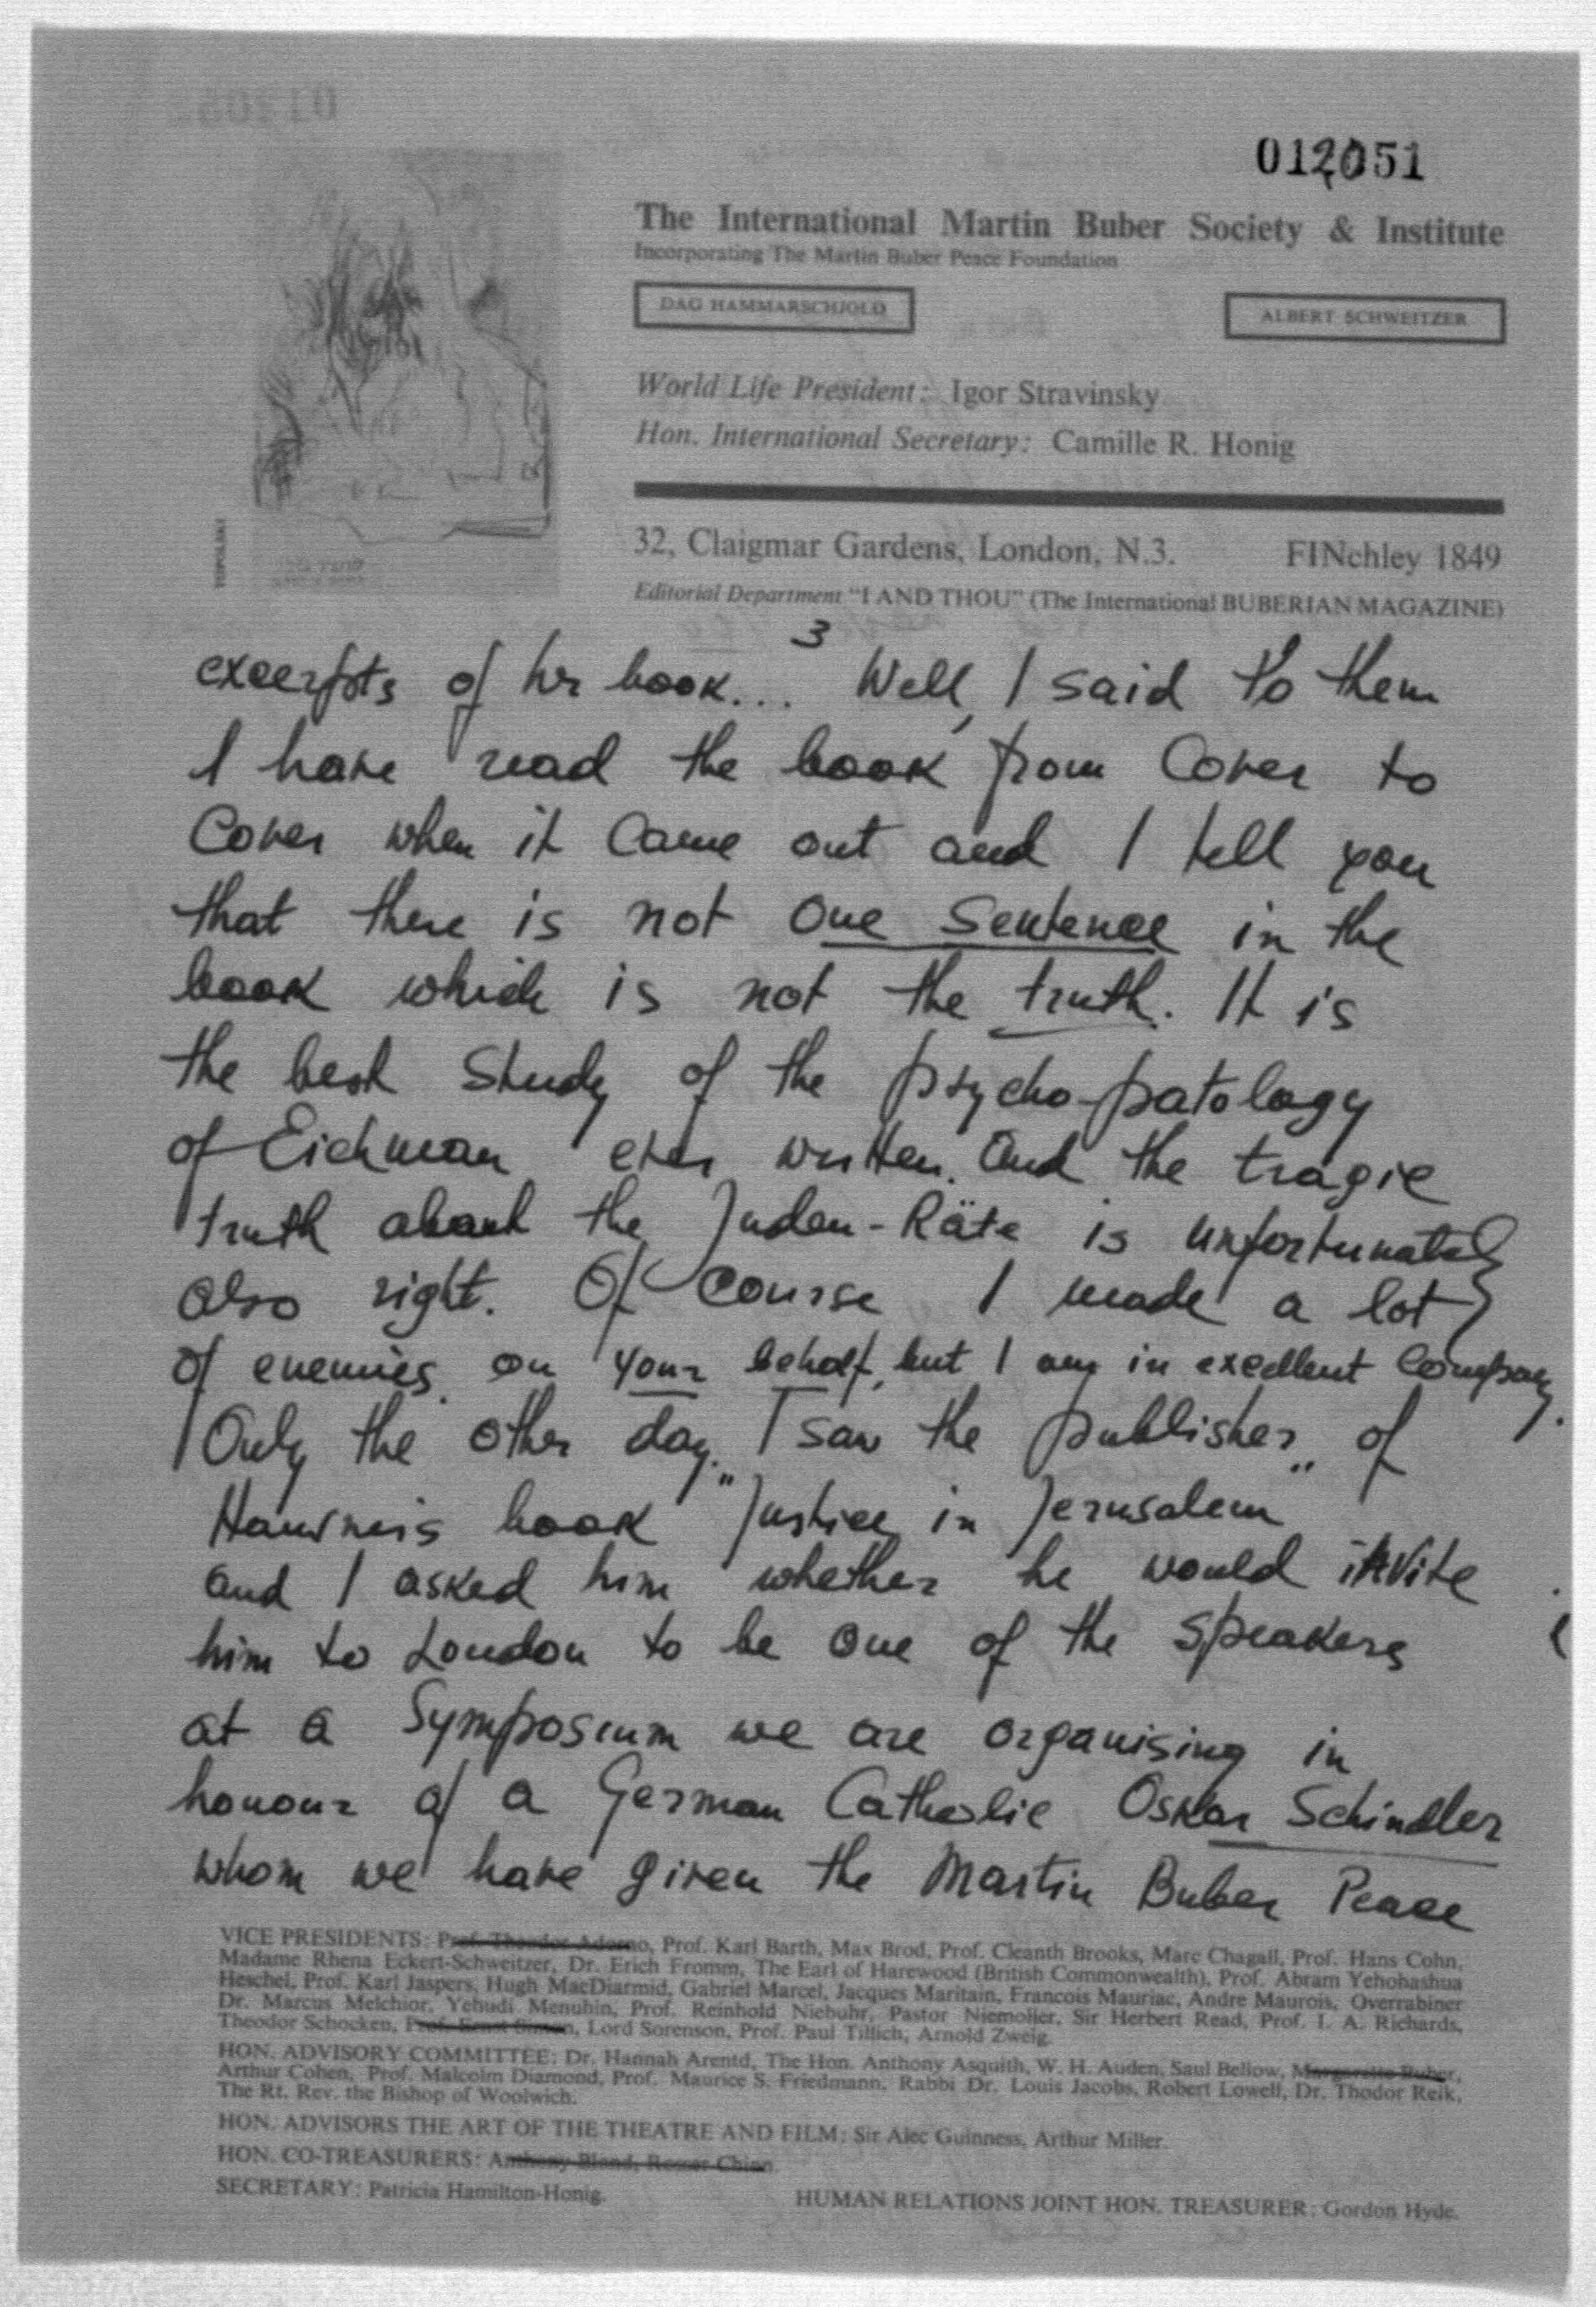 012051
The International Martin Buber Society & Institute
Incorporating The Martin Buber Peace Foundation
DAG HAMMARSCHJOLD
ALBERT SCHWEITZER
World Life President: Igor Stravinsky
Hon. International Secretary: Camille R. Honig
TOPOLSKI
32, Claigmar Gardens, London, N.3. FINchley 1849
Editorial Department "I AND THOU" (The International BUBERIAN MAGAZINE)
3
excerpts of hr book... Well, I said to them
I have read the book from Cover to
Cover when it Came out and I tell you
that there is not One Sentence in the
book which is not the truth. It is
the best Study of the psycho-patology
of Eichman ever written. And the tragic
truth about the Juden-Räte is unfortunately
also right. Of course I made a lot
of enemies on your behalf, but I am in excellent Company.
Only the other day I saw the publisher of
Hausners book "Justice in Jerusalem"
and I asked him whether he would invite
him to London to be one of the speakers
at a Symposium we are organising in
honour of a German Catholic Oskar Schindler
whom we have given the Martin Buber Peace
VICE PRESIDENTS: Prof. Theodor Adorno, Prof. Karl Barth, Max Brod, Prof. Cleanth Brooks, Marc Chagall, Prof. Hans Cohn,
Madame Rhena Eckert-Schweitzer, Dr. Erich Fromm, The Earl of Harewood (British Commonwealth), Prof. Abram Yehohashua
Heschel, Prof. Karl Jaspers, Hugh MacDiarmid, Gabriel Marcel, Jacques Maritain, Francois Mauriac, Andre Maurois, Overrabiner
Dr. Marcus Melchior, Yehudi Menuhin, Prof. Reinhold Niebuhr, Pastor Niemoller, Sir Herbert Read, Prof. I. A. Richards,
Theodor Schocken, Prof. Ernst Simon, Lord Sorenson, Prof. Paul Tillich, Arnold Zweig.
HON. ADVISORY COMMITTEE: Dr. Hannah Arentd, The Hon. Anthony Asquith, W. H. Auden, Saul Bellow, Margarette Buber,
Arthur Cohen, Prof. Malcolm Diamond, Prof. Maurice S. Friedmann, Rabbi Dr. Louis Jacobs, Robert Lowell, Dr. Thodor Reik,
The Rt. Rev. the Bishop of Woolwich.
HON. ADVISORS THE ART OF THE THEATRE AND FILM: Sir Alec Guinness, Arthur Miller.
HON. CO-TREASURERS: Anthony Blond,
SECRETARY: Patricia Hamilton-Honig.
HUMAN RELATIONS JOINT HON. TREASURER: Gordon Hyde.